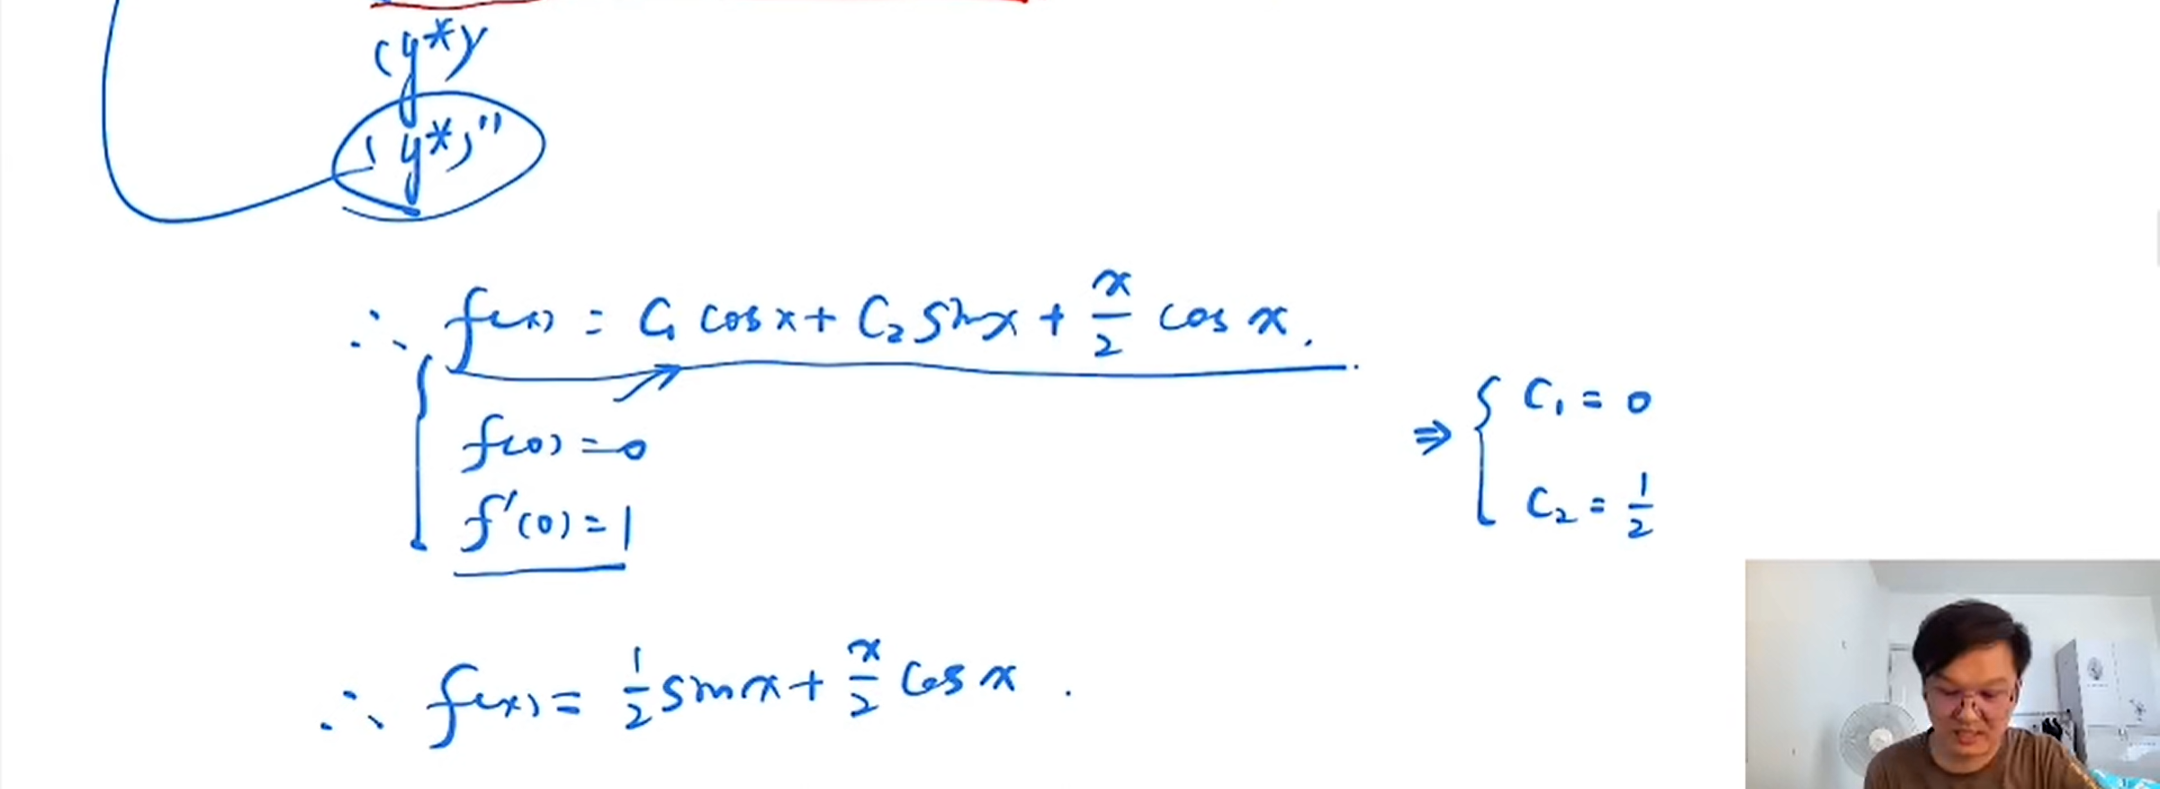 (y*)'
(y*)''
∴ f(x) = C₁ cos x + C₂ sin x + x/2 cos x.
f(0) = 0
f'(0) = 1
⇒ { C₁ = 0
C₂ = 1/2
∴ f(x) = 1/2 sin x + x/2 cos x.